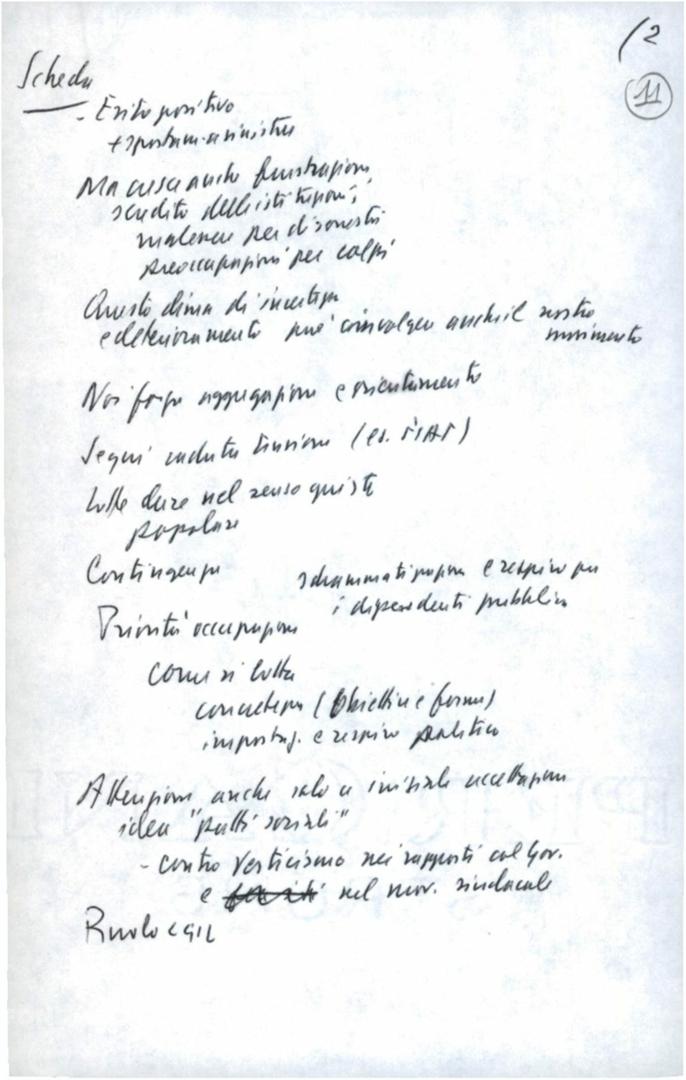 /2
11
Scheda
- Esito positivo
+ spostam. a sinistra
Ma cresce anche frustrazione,
scredito delle istituzioni,
malessere per disonestà
preoccupazioni per colpi
Questo clima di incertezza
e deterioramento può coinvolgere anche il nostro
movimento
Noi forza aggregazione e orientamento
Segni caduta tensione (es. FIAT)
Lotte dure nel senso
popolare
Contingenza
sdrammatizzazione e respiro per
i dipendenti pubblici
Priorità occupazione
come si lotta
concretezza (Obiettivi e forme)
impostaz. e respiro politico
Attenzione anche solo a iniziale accettazione
idea "patti sociali"
- contro verticismo nei rapporti col Gov.
e nel mov. sindacale
Ruolo CGIL